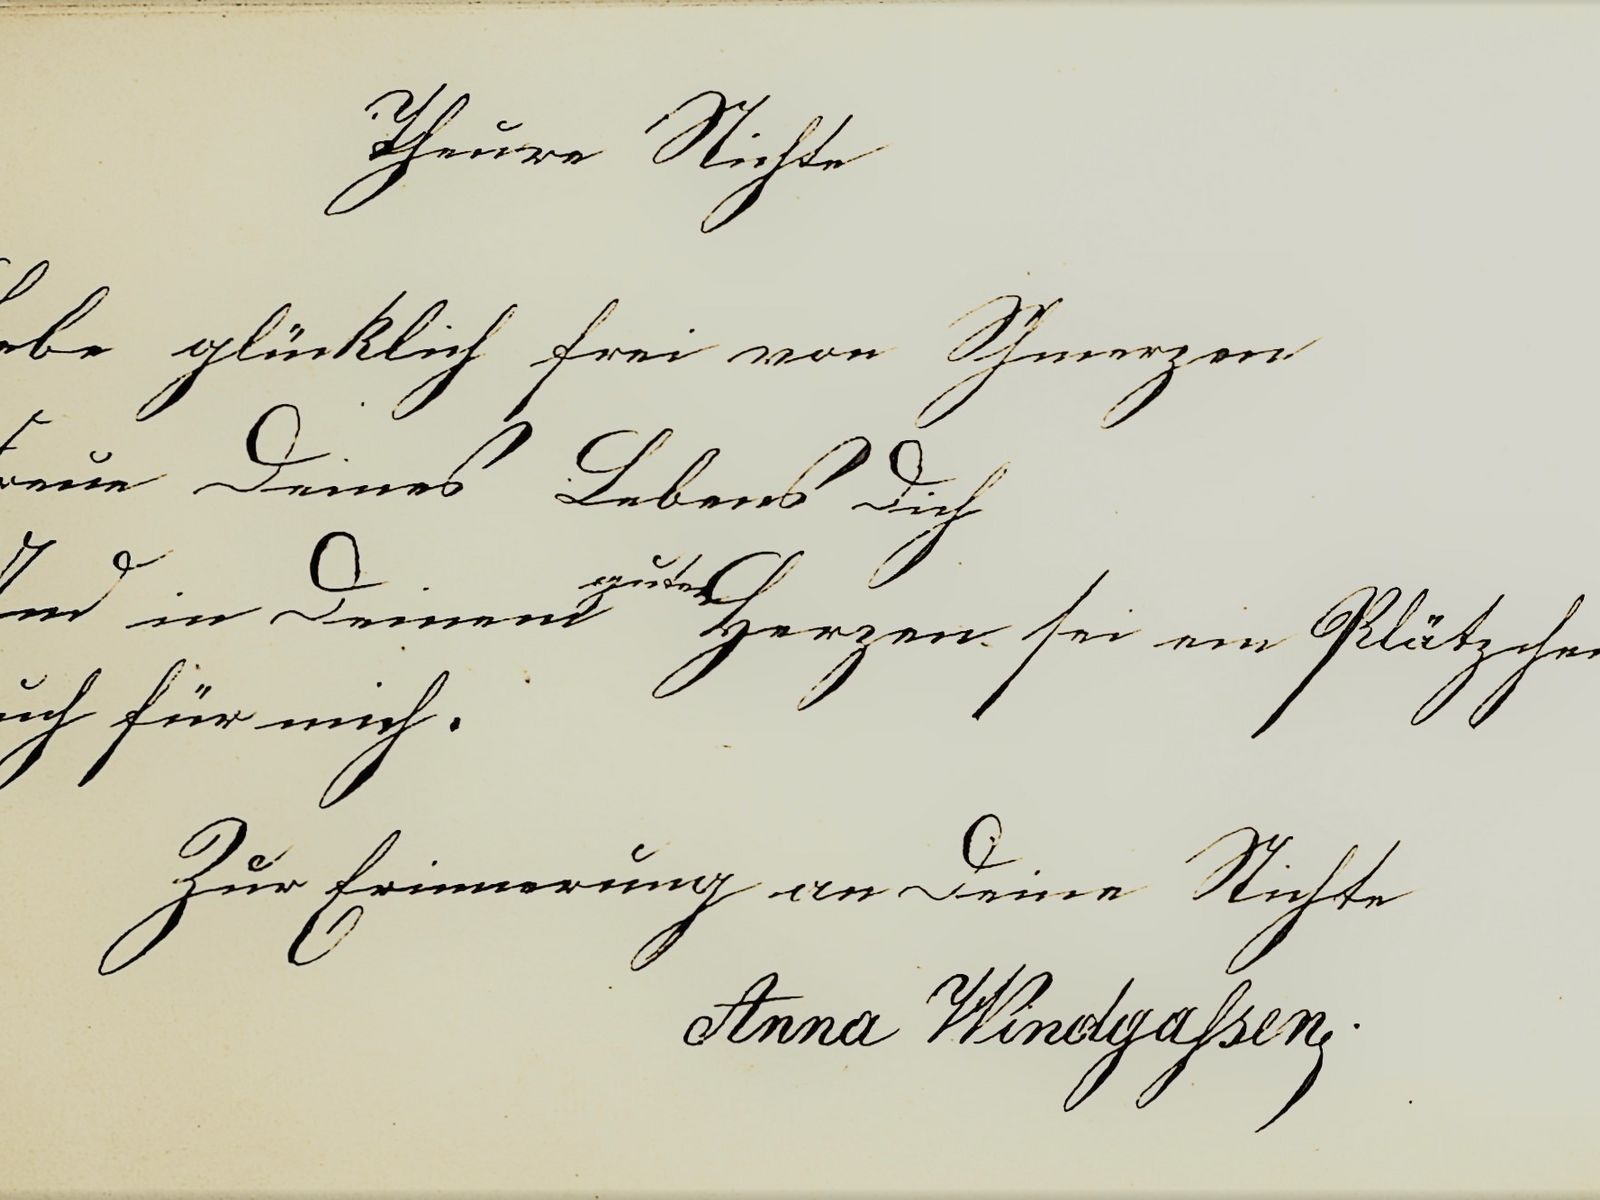 Theure Nichte
Lebe glücklich frei von Schmerzen
Freue Deines Lebens Dich
Und in Deinem guten Herzen sei ein Plätzchen
auch für mich.
Zur Erinnerung an Deine Nichte
Anna Windgaſsen.